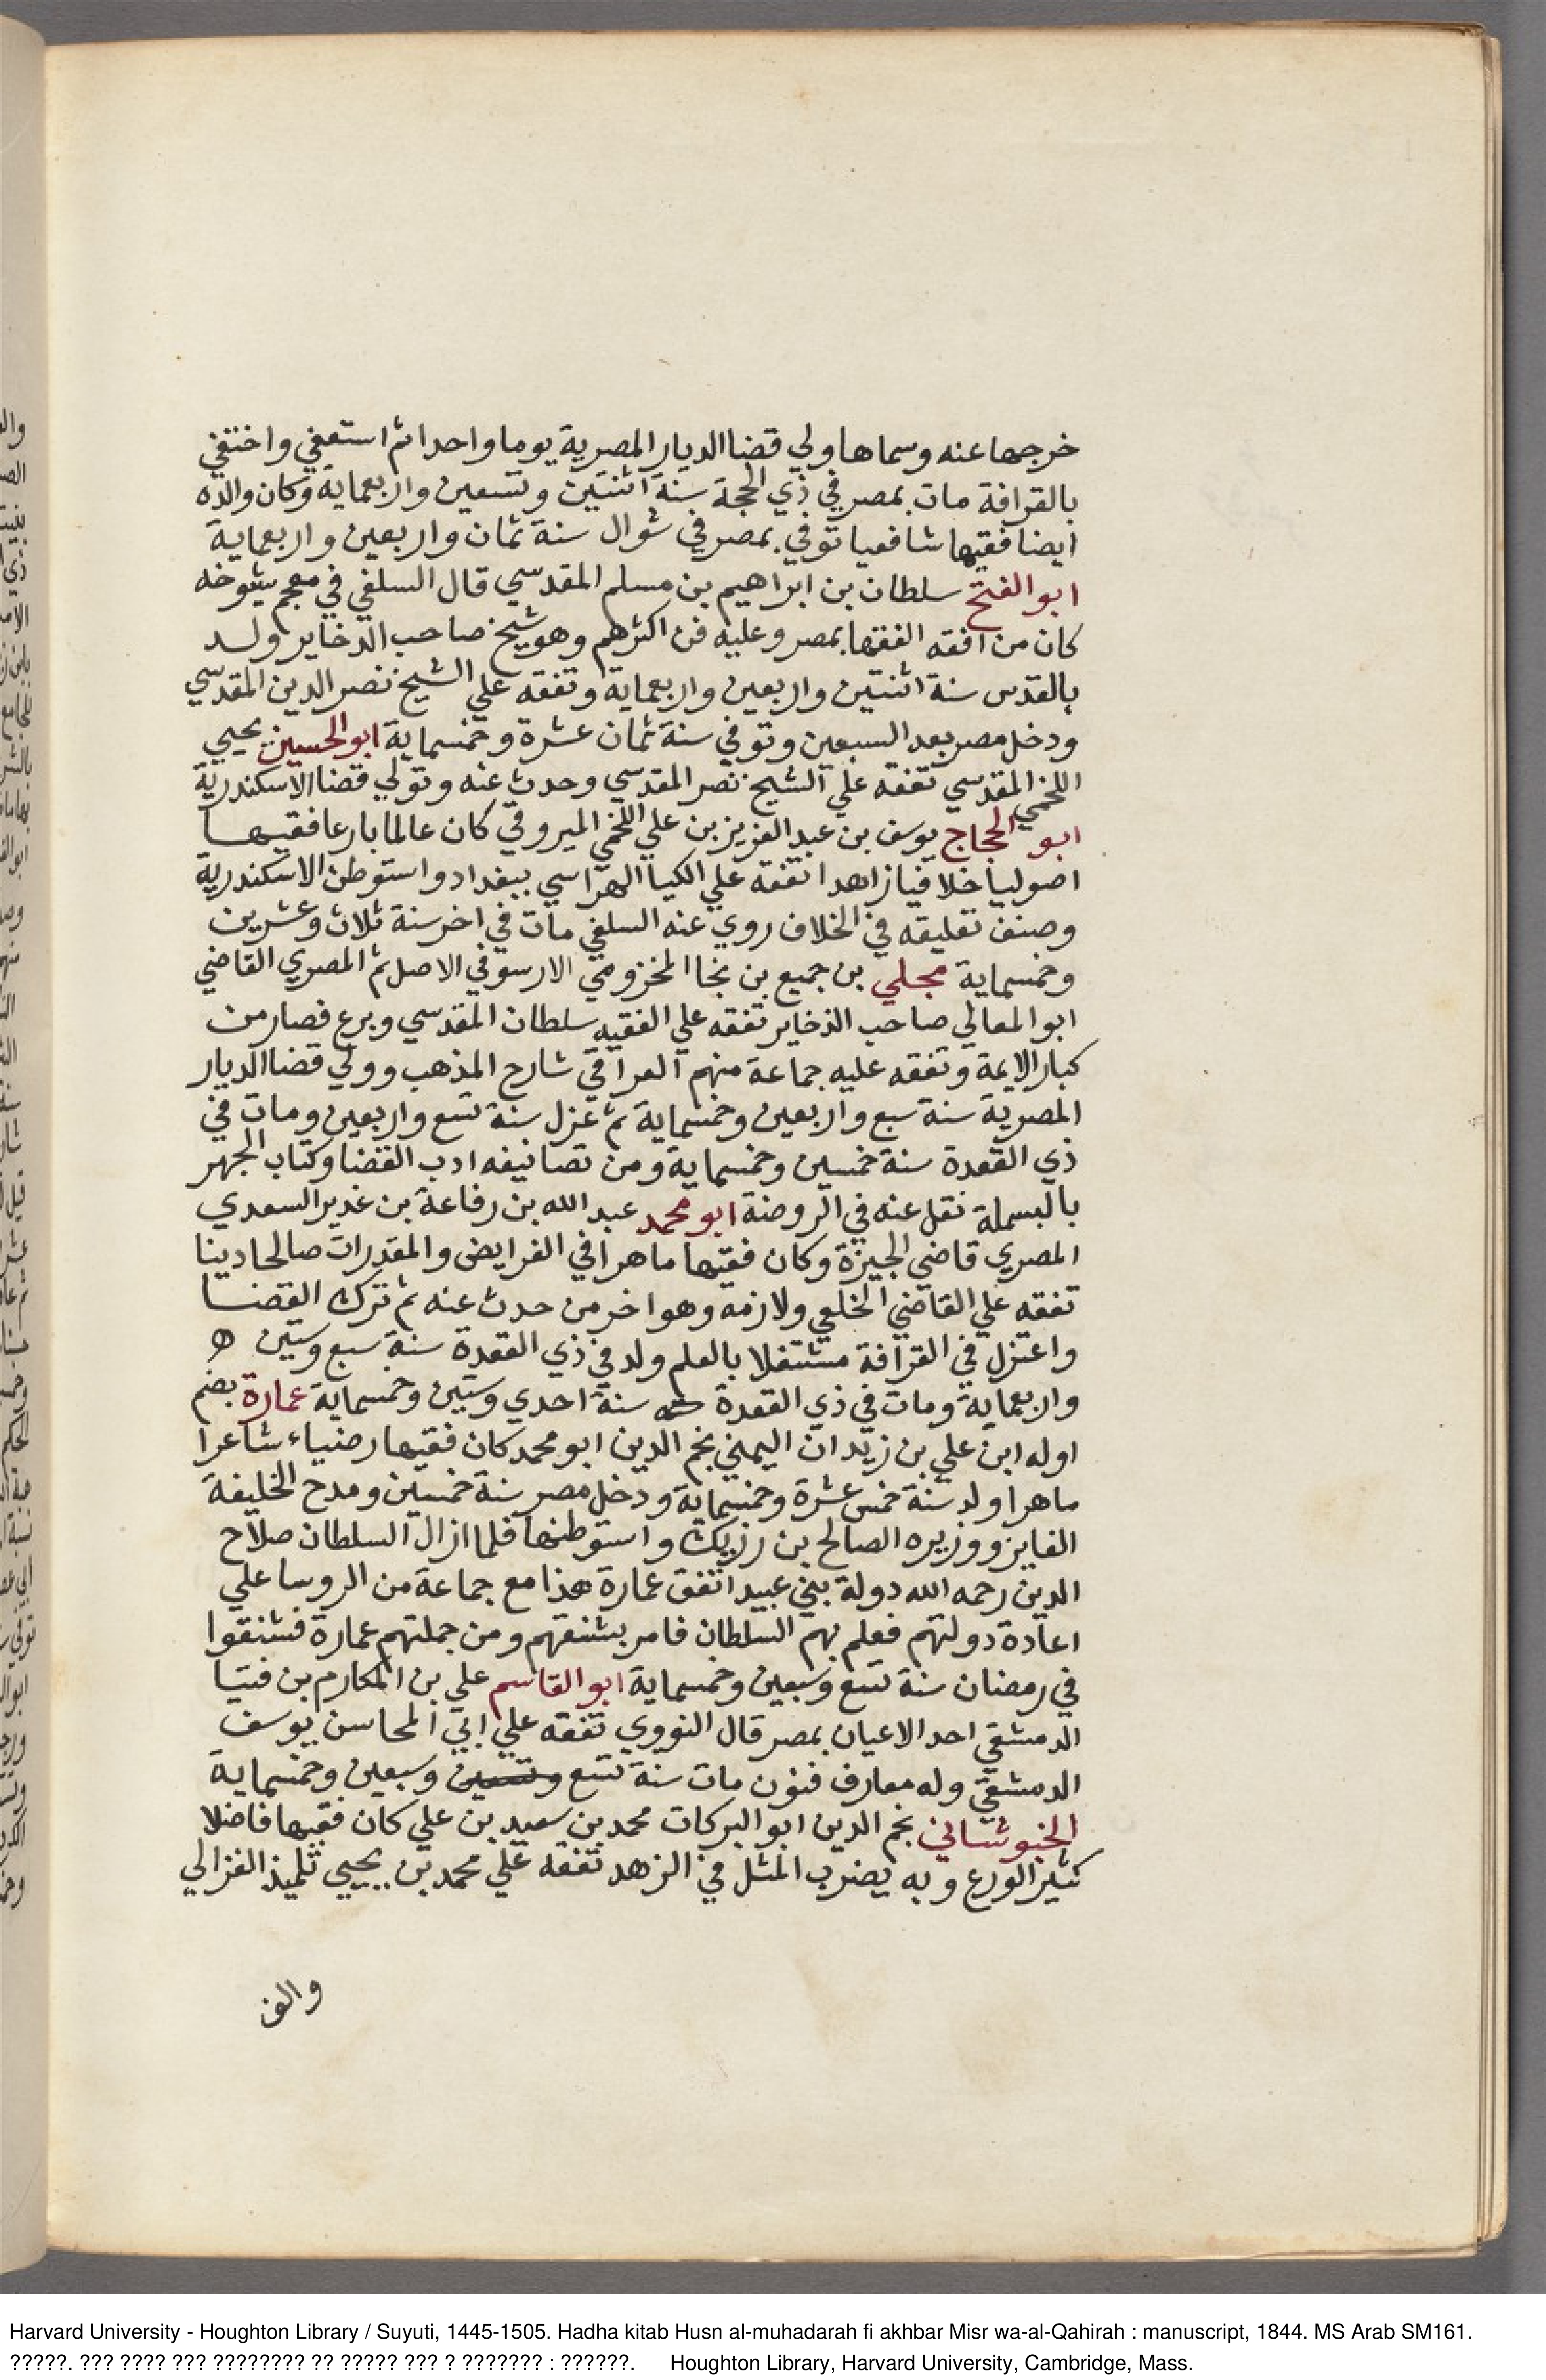 خرجها عنه وسماها ولي قضا الديار المصرية يوما واحدا ثم استعفي واختفي
بالقرافة مات بمصر في ذي الحجة سنة اثنتين وتسعين واربعماية وكان والده
ايضا فقيها شافعيا توفي بمصر في شوال سنة ثمان واربعين واربعماية
ابو الفتح سلطان بن ابراهيم بن مسلم المقدسي قال السلفي في معجم شيوخه
كان من افقه الفقها بمصر وعليه قرا اكثرهم وهو شيخ صاحب الذخاير ولد
بالقدس سنة اثنتين واربعين واربعماية وتفقه علي الشيخ نصر الدين المقدسي
ودخل مصر بعد السبعين وتوفي سنة ثمان عشرة وخمسماية ابو الحسين يحيي
اللخمي المقدسي تفقه علي الشيخ نصر المقدسي وحدث عنه وتولي قضا الاسكندرية
ابو الحجاج يوسف بن عبد العزيز بن علي اللخمي الميروقي كان عالما بارعا فقيها
اصوليا خلافيا زاهدا تفقه علي الكيا الهراسي ببغداد واستوطن الاسكندرية
وصنف تعليقه في الخلاف روي عنه السلفي مات في اخر سنة ثلاث وعشرين
وخمسماية مجلي بن جميع بن نجا المخزومي الارسوفي الاصل ثم المصري القاضي
ابو المعالي صاحب الذخاير تفقه علي الفقيه سلطان المقدسي وبرع فصار من
كبار الايمة وتفقه عليه جماعة منهم العراقي شارح المذهب وولي قضا الديار
المصرية سنة سبع واربعين وخمسماية ثم عزل سنة تسع واربعين ومات في
ذي القعدة سنة خمسين وخمسماية ومن تصانيفه ادب القضا وكتاب الجهر
بالبسملة نقل عنه في الروضة ابو محمد عبد الله بن رفاعة بن غدير السعدي
المصري قاضي الجيزة وكان فقيها ماهرا في الفرايض والمقدرات صالحا دينا
تفقه علي القاضي الخلعي ولازمه وهو اخر من حدث عنه ثم ترك القضا
واعتزل في القرافة مشتغلا بالعلم ولد في ذي القعدة سنة سبع وستين
واربعماية ومات في ذي القعدة سنة احدي وستين وخمسماية عمارة بضم
اوله ابن علي بن زيدان اليمني نجم الدين ابو محمد كان فقيها رضياء شاعرا
ماهرا ولد سنة خمس عشرة وخمسماية ودخل مصر سنة خمسين ومدح الخليفة
الفايز ووزيره الصالح بن رزيك واستوطنها فلما ازال السلطان صلاح
الدين رحمه الله دولة بني عبيد اتفق عمارة هذا مع جماعة من الروسا علي
اعادة دولتهم فعلم بهم السلطان فامر بشنقهم ومن جملتهم عمارة فشنقوا
في رمضان سنة تسع وسبعين وخمسماية ابو القاسم علي بن المكارم بن فتيا
الدمشقي احد الاعيان بمصر قال النووي تفقه علي ابي المحاسن يوسف
الدمشقي وله معارف فنون مات سنة تسع وتسعين وسبعين وخمسماية
الخبوشاني نجم الدين ابو البركات محمد بن سعيد بن علي كان فقيها فاضلا
كثير الورع وبه يضرب المثل في الزهد تفقه علي محمد بن يحيي تلميذ الغزالي
Harvard University - Houghton Library / Suyuti, 1445-1505. Hadha kitab Husn al-muhadarah fi akhbar Misr wa-al-Qahirah : manuscript, 1844. MS Arab SM161.
?????. ??? ???? ??? ???????? ?? ????? ??? ? ??????? : ??????. Houghton Library, Harvard University, Cambridge, Mass.